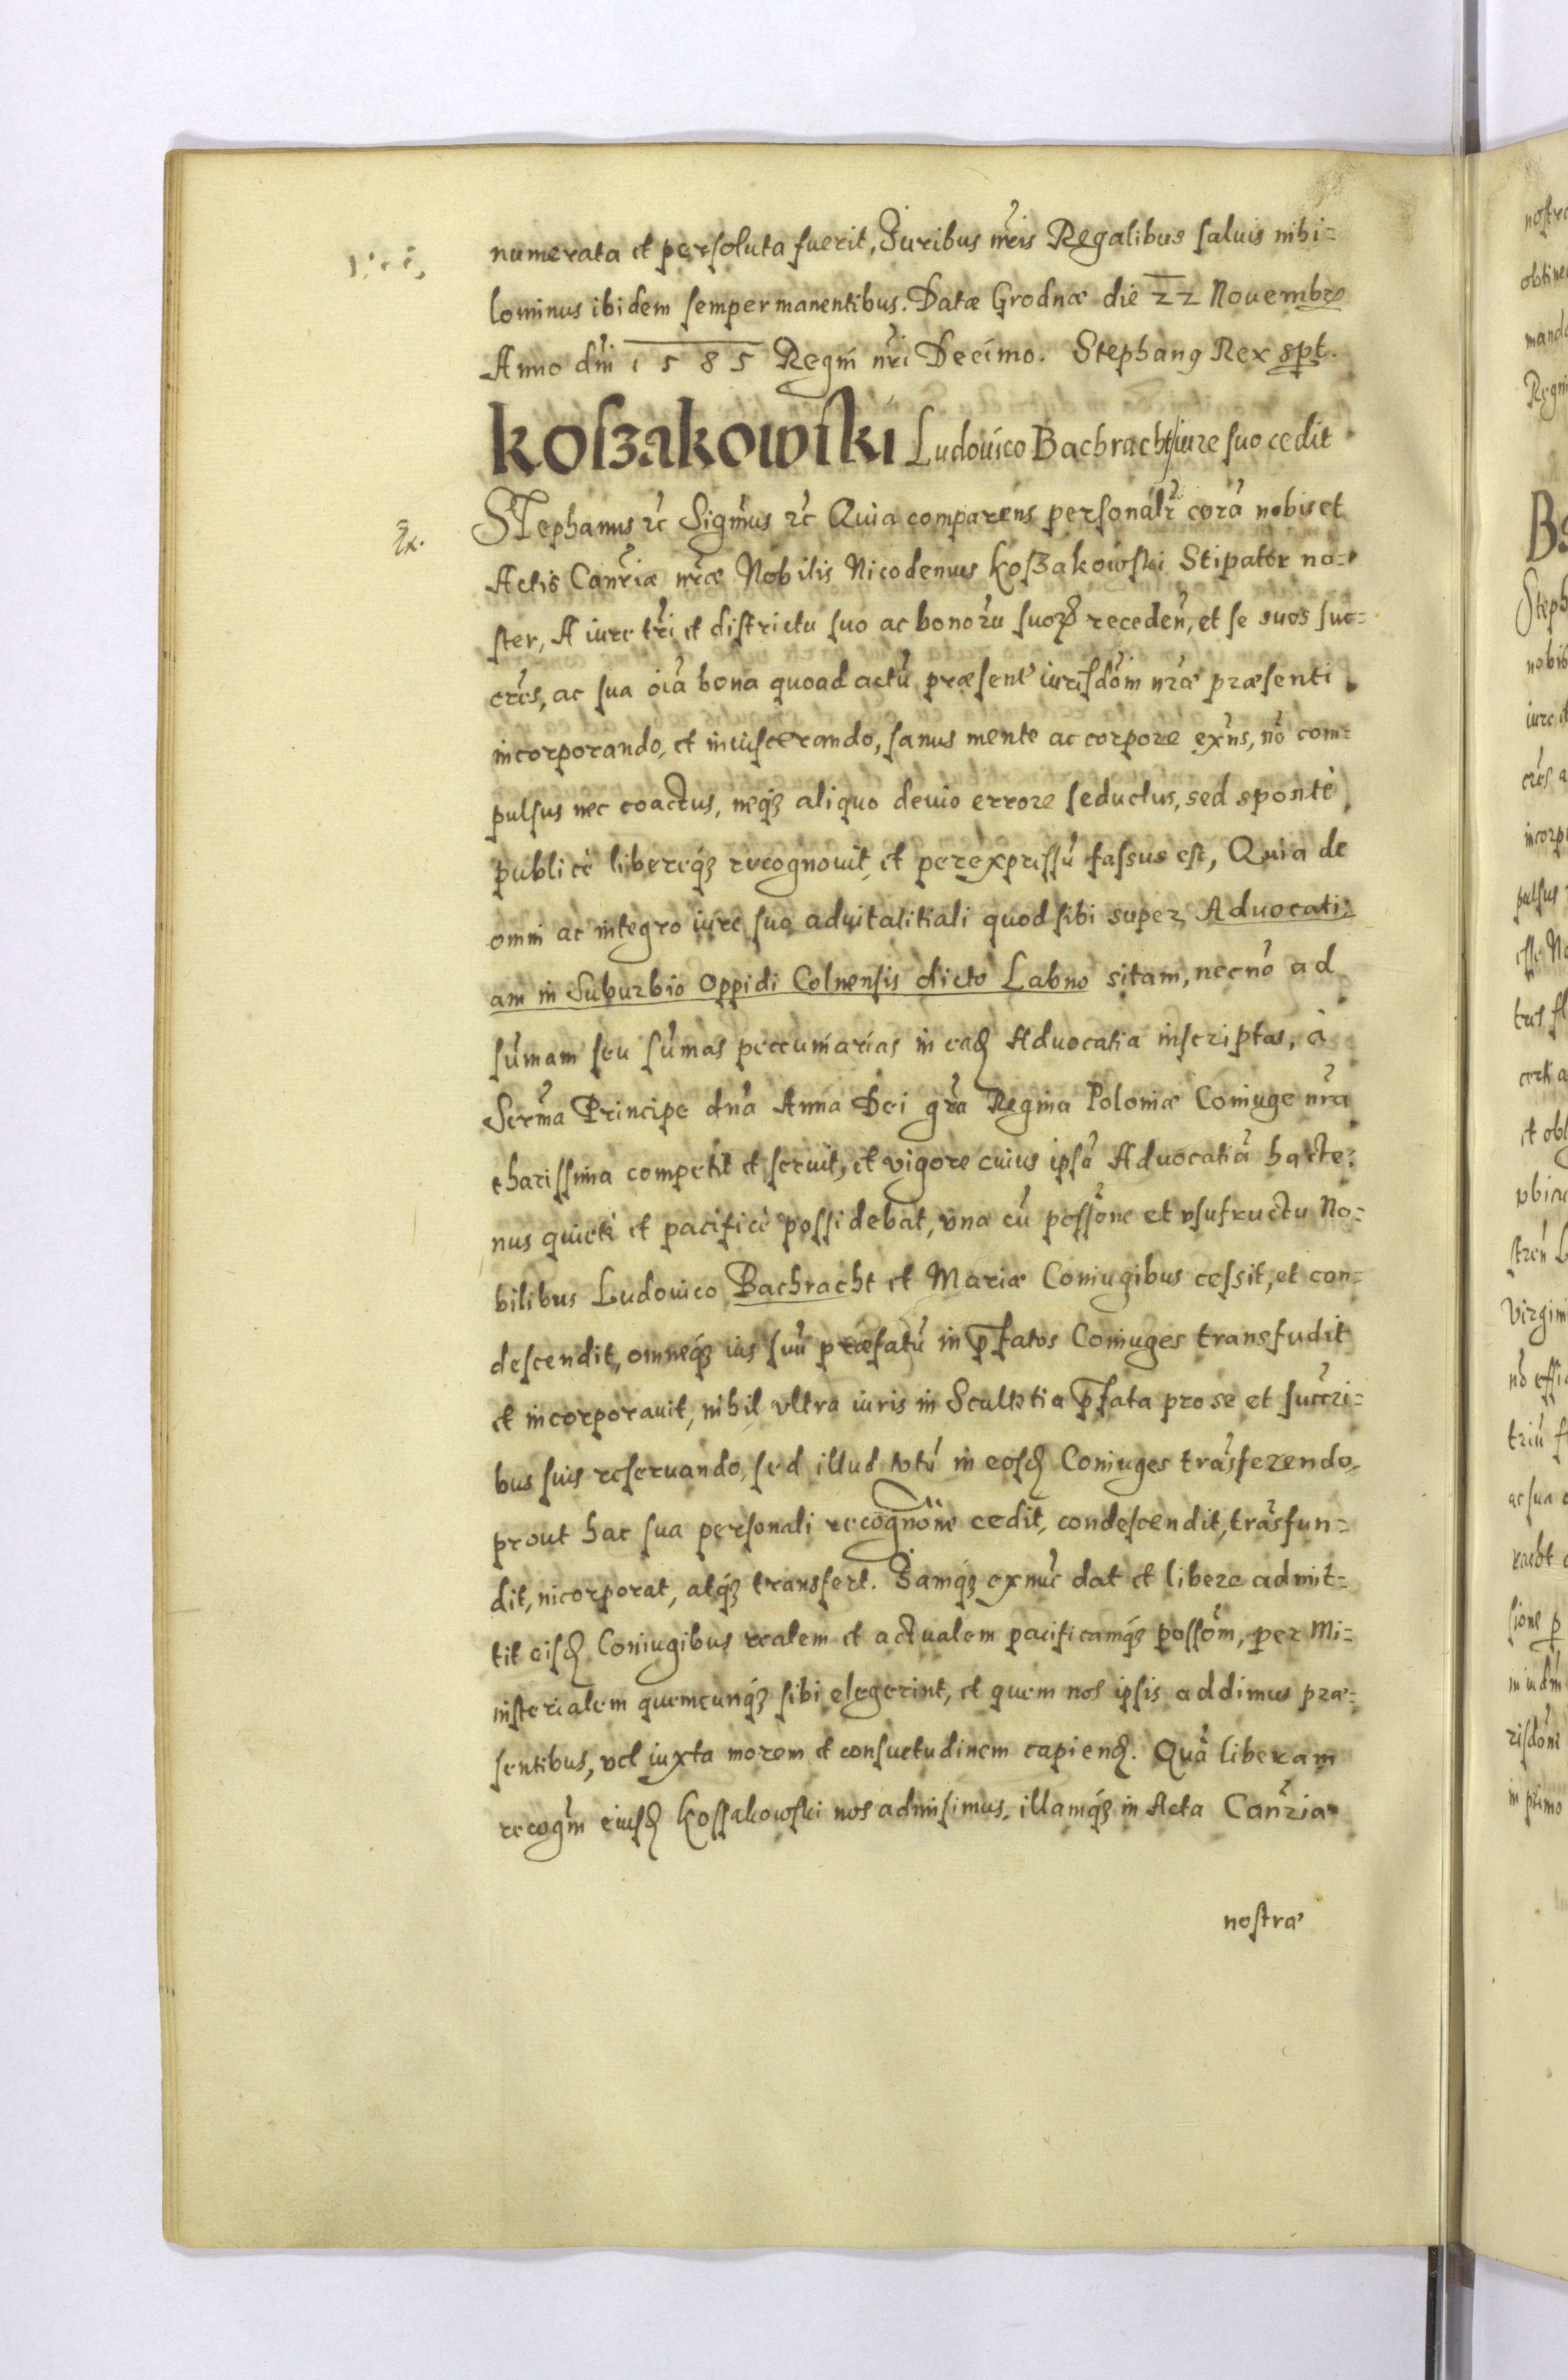 numerata et persoluta fuerit, Juribus nr̃is Regalibus saluis nihi=
lominus ibidem semper manentibus. Datæ Grodnæ die 22 Nouembr̃
Anno dni̇̃ 1585 Regni nr̃i Decimo. Stephanꝰ Rex spt.
koſzakowſki Ludouico Bachracht iure suo cedit
Ex.
Stephanus ꝛc̃ Sigm̃us ꝛc̃ Quia comparens personalr̃ corã nobis et
Actis Canr̃iæ nr̃æ Nobilis Nicodemus koſzakowſki Stipator no=
ster, A iure tr̃i et districtu suo ac bonorũ suoꝝ receden̄, et se suos suc=
cr̃es, ac sua oĩa bona quoad actũ præsenť iurisdõm nr̃æ præsenti
incorporando, et inuiscerando, sanus mente ac corpore exñs, nõ com=
pulsus nec coactus, neqꝫ aliquo deuio errore seductus, sed spontè
publicè libereqꝫ recognouit, et per expressũ fassus est, Quia de
omni ac integro iure suo aduitalitiali quod sibi super Aduocati=
am in Suburbio Oppidi Colnensis dicto Labno sitam, necnõ ad
sũmam seu sũmas peccuniarias in eadꝫ Aduocatia inscriptas, à
Serm̃a Principe dn̄a Anna Dei gr̃a Regina Poloniæ Coniuge nr̃a
charissima competit et seruit, et vigore cuius ipsã Aduocatiã hacte=
nus quietè et pacificè possidebat, vna cũ possõne et vsufructu No=
bilibus Ludouico Bachracht et Mariæ Coniugibus cessit, et con=
descendit, omneqꝫ ius suũ præfatũ in p̄fatos Coniuges transfudit
et incorporauit, nihil vltra iuris in Scultetia p̄fata pro se et succr̃i=
bus suis reseruando, sed illud totũ in eosdꝫ Coniuges trãsferendo,
prout hac sua personali recognõne cedit, condescendit, trãsfun=
dit, incorporat, atqꝫ transfert. Jamqꝫ ex nũc dat et libere admit=
tit eisdꝫ Coniugibus realem et actualem pacificamqꝫ possõm, per Mi=
nisterialem quemcunqꝫ sibi elegerint, et quem nos ipsis addimus præ=
sentibus, vel iuxta morem et consuetudinem capiendꝫ. Quã liberam
recogñ eiusdꝫ Kossakowski nos admisimus, illamqꝫ in Acta Canr̃iæ
nostræ